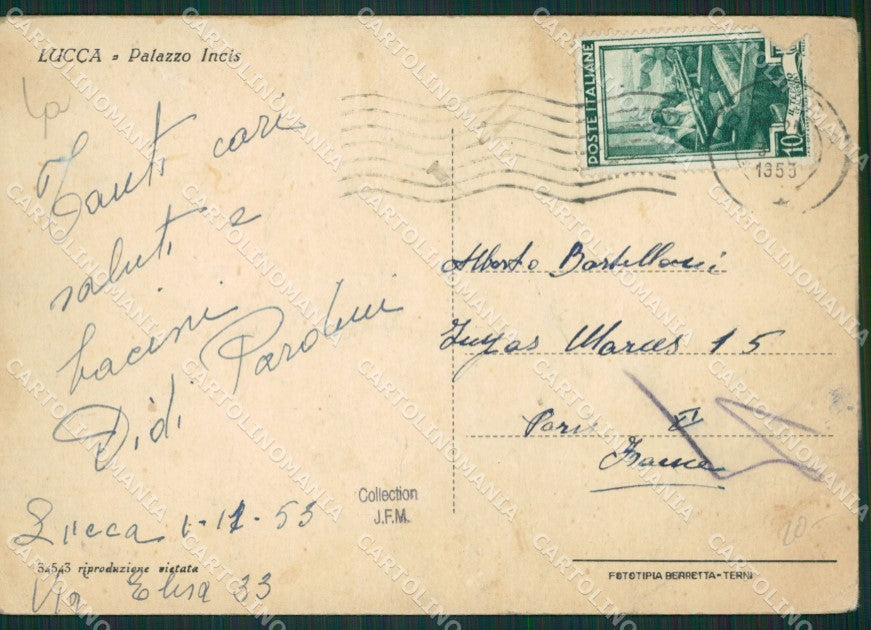 LUCCA - Palazzo Incis
Tanti cari
saluti e
bacini
Didi Pardini
Lucca 1-12-53
Via Elisa 33
34543 riproduzione vietata
Collection
J.F.M.
POSTE ITALIANE
10
1953
Alberto Bartelloni
Marcs 15
Paris XI
France
20-
FOTOTIPIA BERRETTA - TERNI
CARTOLINOMANIA